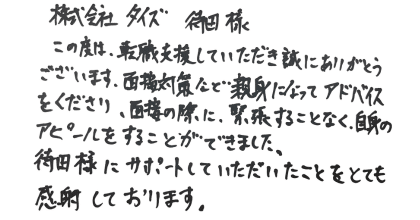 株式会社タイズ 待田様
この度は、転職支援していただき誠にありがとう
ございます。面接対策など親身になってアドバイス
をくださり、面接の際に、緊張することなく、自身の
アピールをすることができました。
待田様にサポートしていただいたことをとても
感謝しております。